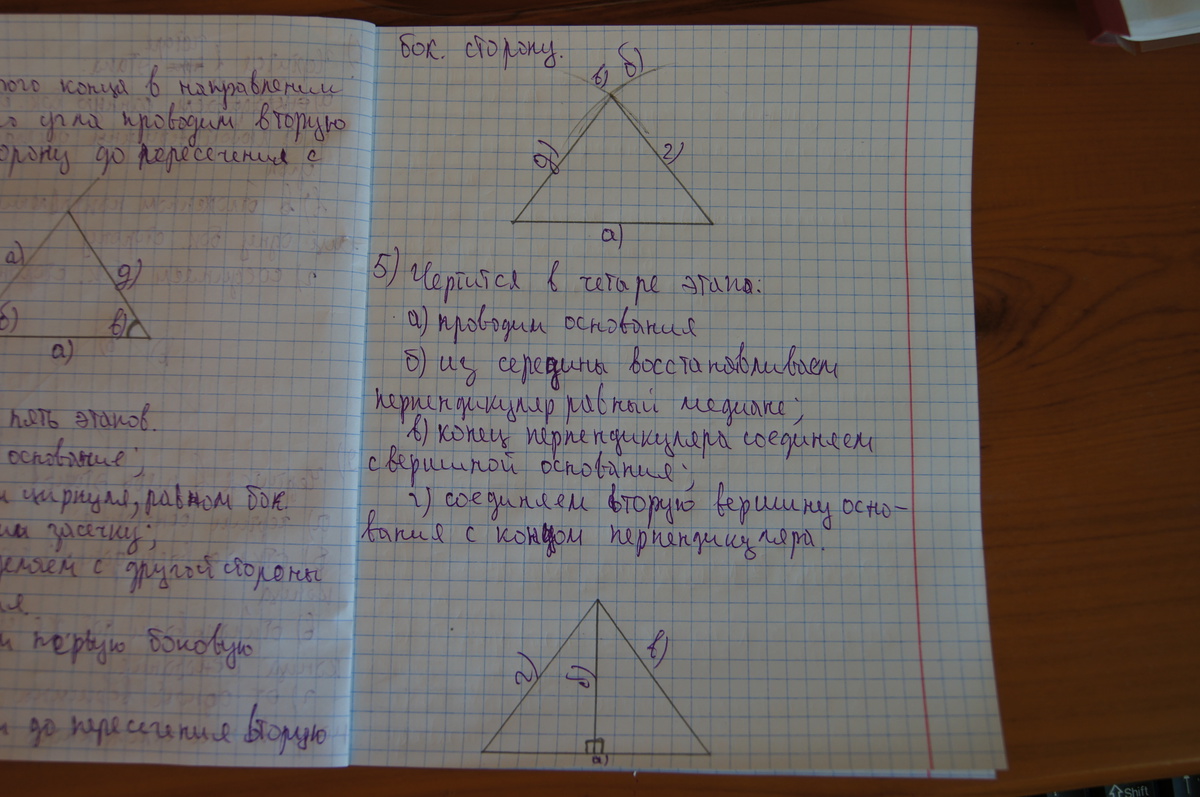 рого конца в направлении
го угла проводим вторую
орону до пересечения с
а)
б)
в)
д)
а)
пять этапов.
основание;
м циркуля, равном бок.
им засечку;
деляем с другой стороны
ия.
м первую боковую
м до пересечения вторую
бок. сторону.
в) б)
б)
г)
а)
5) Чертится в четаре этапа:
а) проводим основания
б) из середины восстанавливаем
перпендикуляр равный медиане;
в) конец перпендикуляра соединяем
с вершиной основания;
г) соединяем вторую вершину осно-
вания с концом перпендикуляра.
г)
б)
в)
а)
Shift